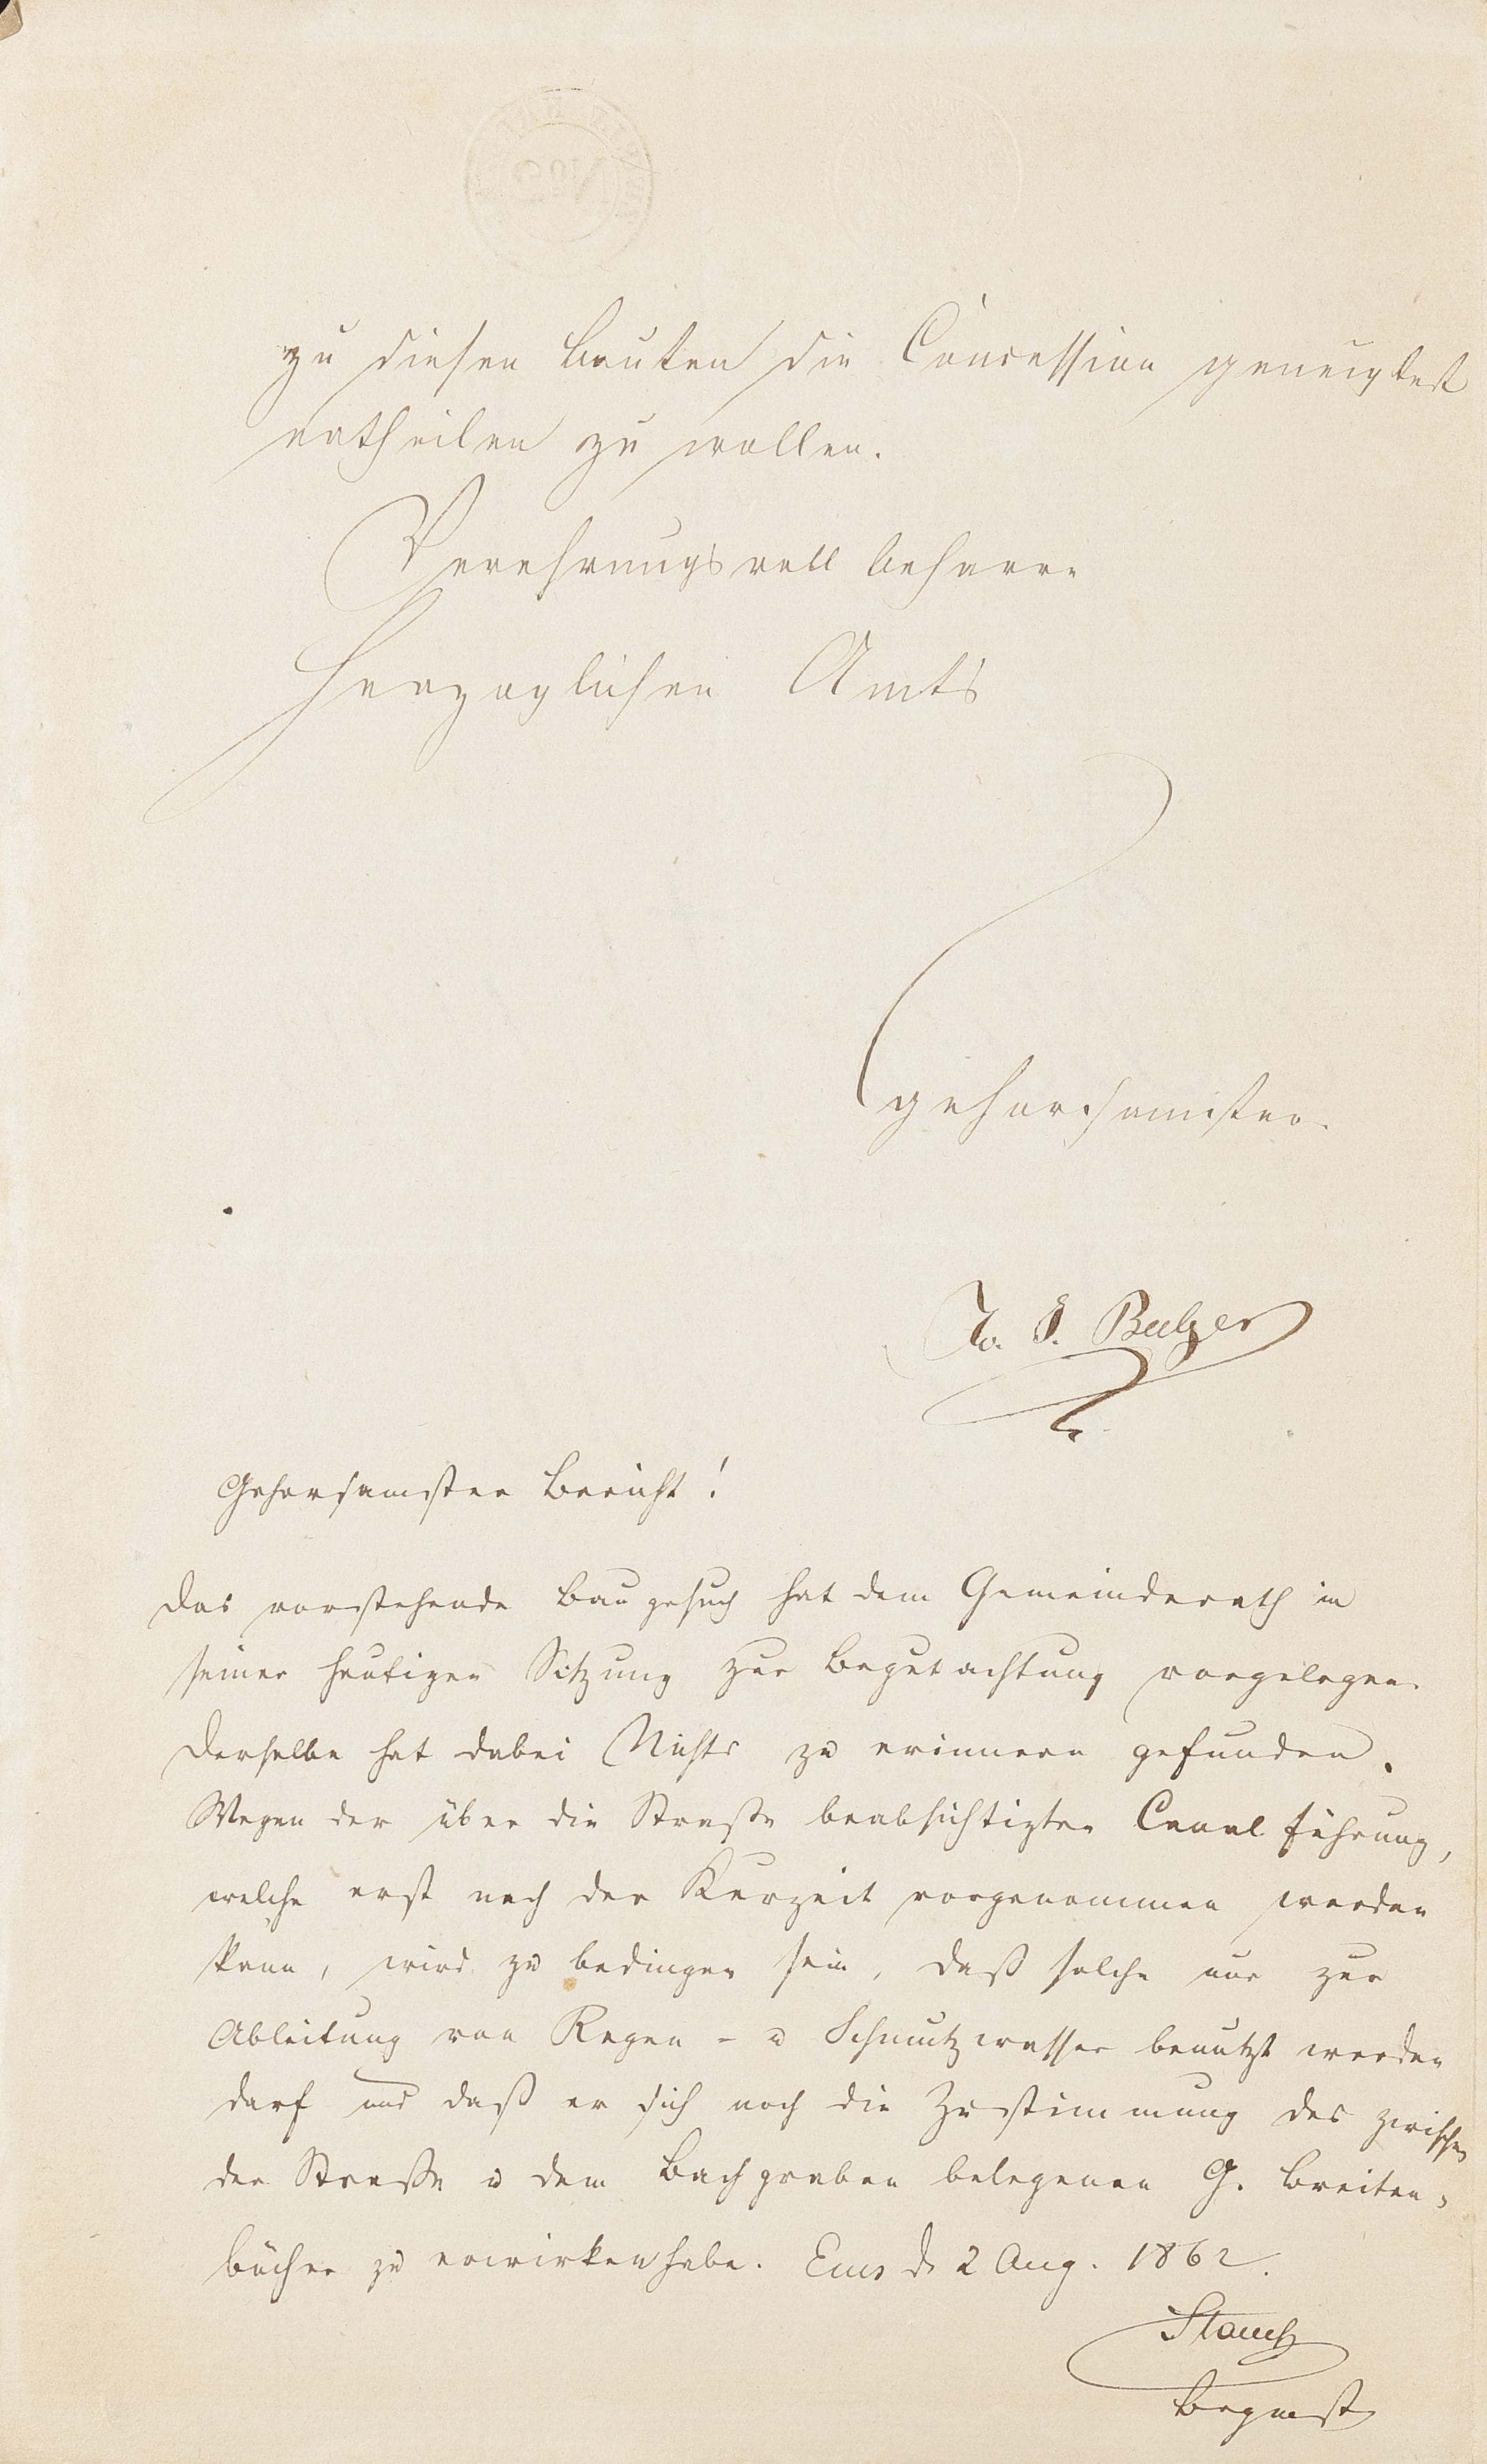 zu diesen Bauten die Concession geneigtest
ertheilen zu wollen.
Verehrungsvoll beharre
Herzoglichen Amts
gehorsamster
J. Balzer
Gehorsamster Bericht!
Das vorstehende Baugesuch hat dem Gemeinderath in
seiner heutigen Sitzung zur Begutachtung vorgelegen.
Derselbe hat dabei Nichts zu erinnern gefunden.
Wegen der über die Straße beabsichtigten Canalführung,
welche erst nach der Kurzeit vorgenommen werden
kann, wird zu bedingen sein, daß solche nur zur
Ableitung von Regen- u Schmutzwasser benutzt werden
darf und daß er sich noch die Zustimmung des zwischen
der Straße u dem Bachgraben belegenen G. Breiten-
bücher zu erwirken habe. Ems d. 2 Aug. 1862.
Bgmst